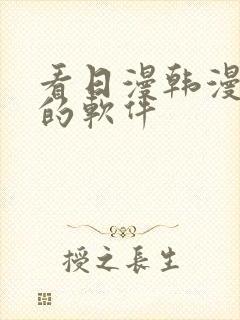 看日漫韩漫
的軟件
授之長生